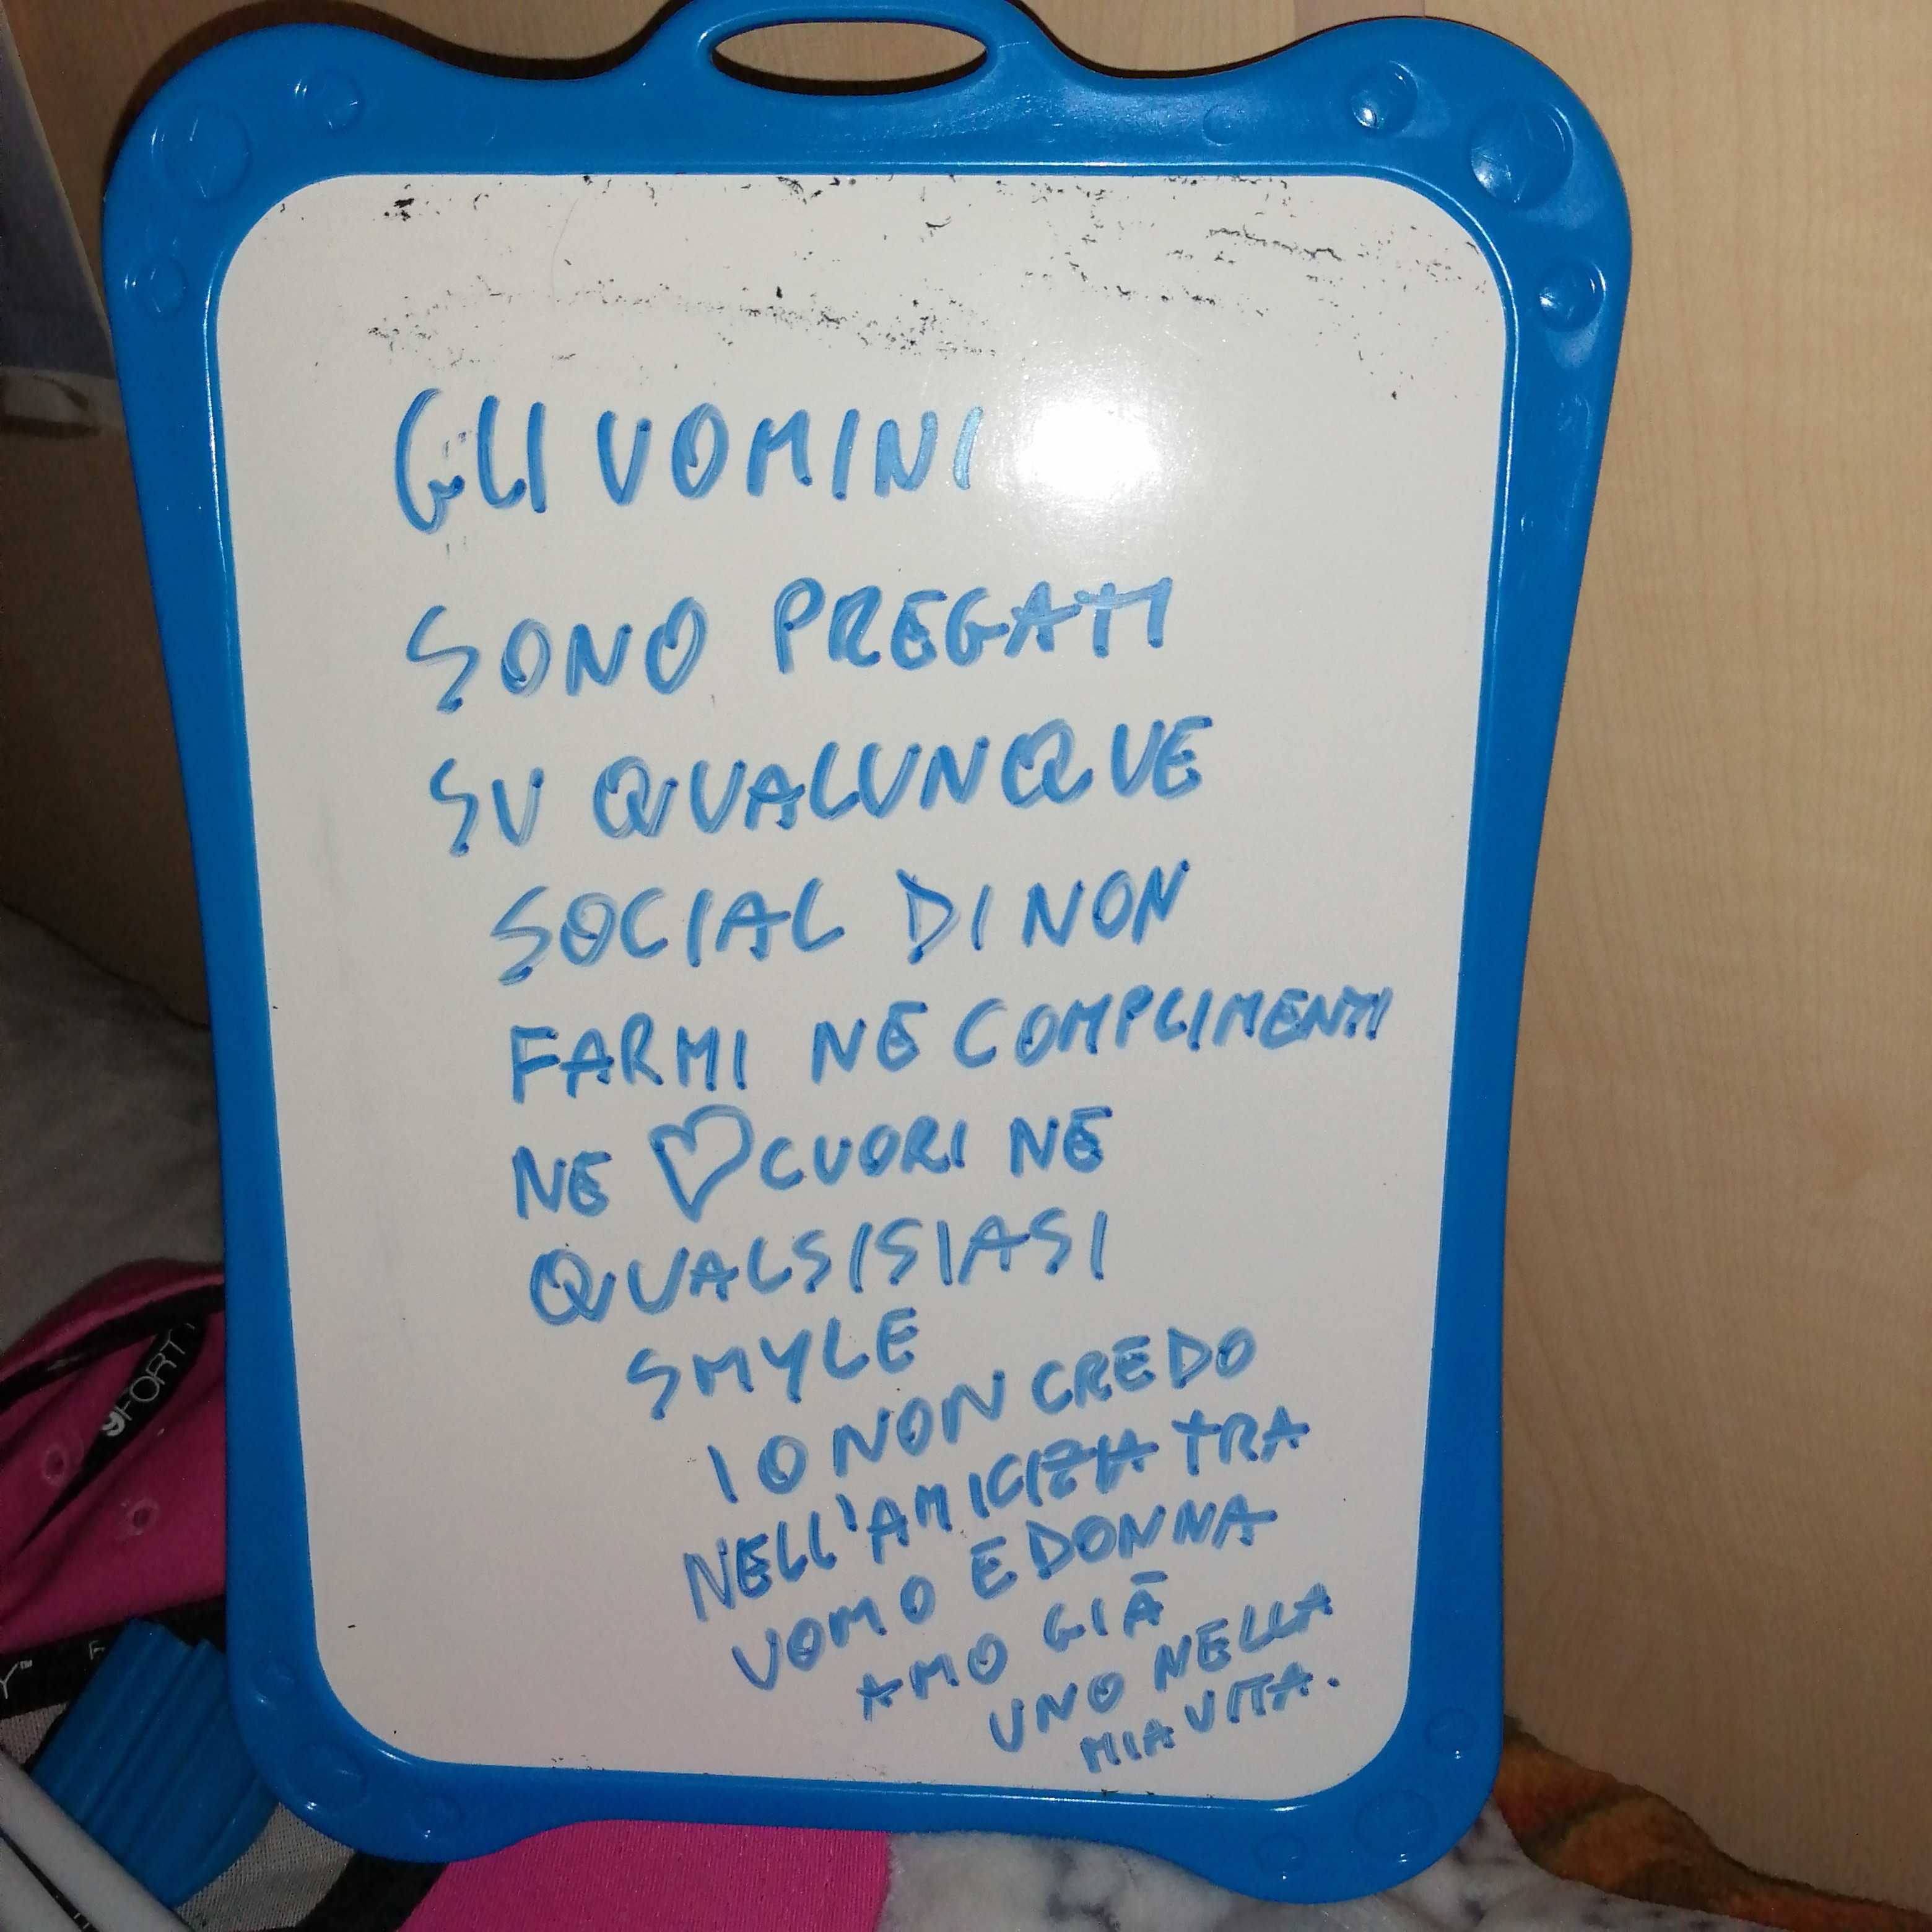 GLI UOMINI
SONO PREGATI
SU QUALUNQUE
SOCIAL DI NON
FARMI NÉ COMPLIMENTI
NE ♡ CUORI NÉ
QUALSISIASI
SMYLE
IO NON CREDO
NELL'AMICIZIA TRA
UOMO E DONNA
AMO GIÀ
UNO NELLA
MIA VITA.
9FORTY